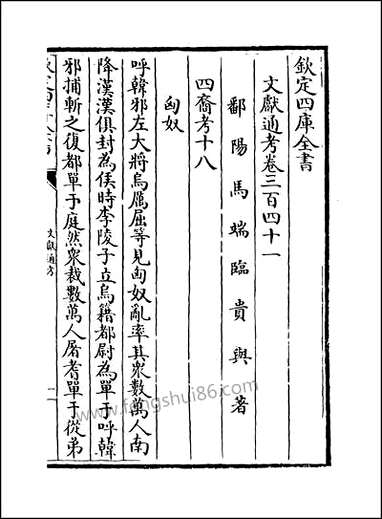 欽定四庫全書
文獻通考卷三百四十一
鄱陽馬端臨貴與著
四裔考十八
匈奴
呼韓邪左大將烏厲屈等見匈奴亂率其衆數萬人南
降漢漢俱封為侯時李陵子立烏籍都尉為單于呼韓
邪捕斬之復都單于庭然衆裁數萬人屠耆單于從弟
文獻通考
www.fengshui86.com